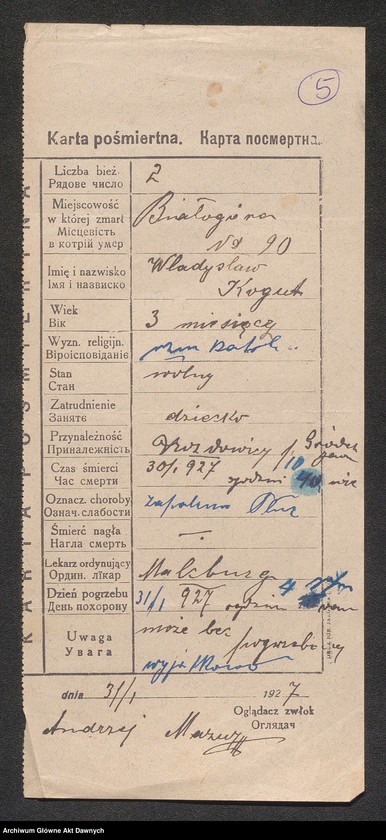 5
Karta pośmiertna. Карта посмертна.
KARTA POŚMIERTNA
Liczba bież.
Рядове число
2
Miejscowość
w której zmarł
Місцевість
в котрій умер
Białogóra
No 90
Imię i nazwisko
Імя і назвиско
Władysław
Kogut
Wiek
Вік
3 miesięcy
Wyzn. religijn.
Віроісповіданє
rzym katol.
Stan
Стан
wolny
Zatrudnienie
Занятє
dziecko
Przynależność
Приналежність
p. Gródek
Czas śmierci
Час смерти
30/1 927 godzini 10
Oznacz. choroby
Означ. слабости
zapalenie Płuc
Śmierć nagła
Нагла смерть
—
Lekarz ordynujący
Ордин. лїкар
Dzień pogrzebu
День похорону
31/1 927 godzini 4
Uwaga
Увага
może bez
wyjątkowo
dnia 31/1 1927
Oglądacz zwłok
Оглядач
Andrzej Mazur
Archiwum Główne Akt Dawnych